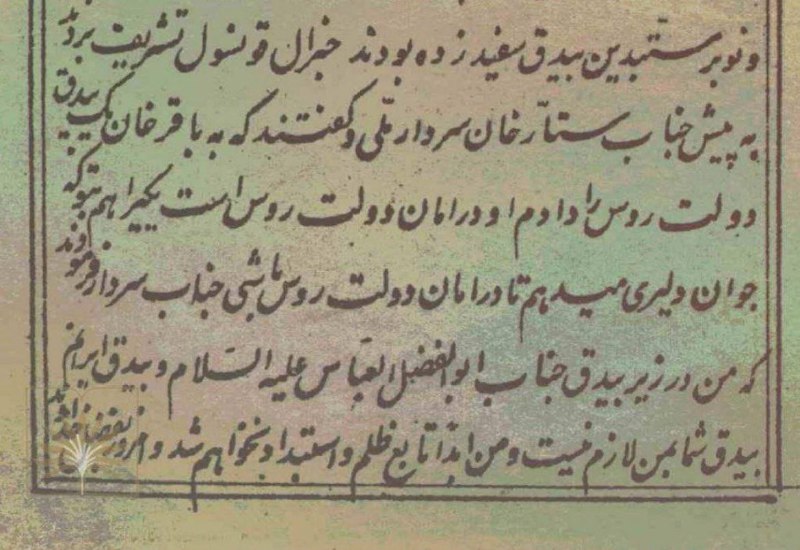 و نوبر مستبدین بیدق سفید زده بودند جنرال قونسول تشریف بردند
به پیش جناب ستارخان سردار ملّی و گفتند که به باقرخان یک بیدق
دولت روس را دادم او در امان دولت روس است یکی را هم بتو که
جوان دلیری میدهم تا در امان دولت روس باشی جناب سردار فرمودند
که من در زیر بیدق جناب ابوالفضل العبّاس علیه السّلام و بیدق ایرانم
بیدق شما بمن لازم نیست و من ابدًا تابع ظلم و استبداد نخواهم شد و امروز